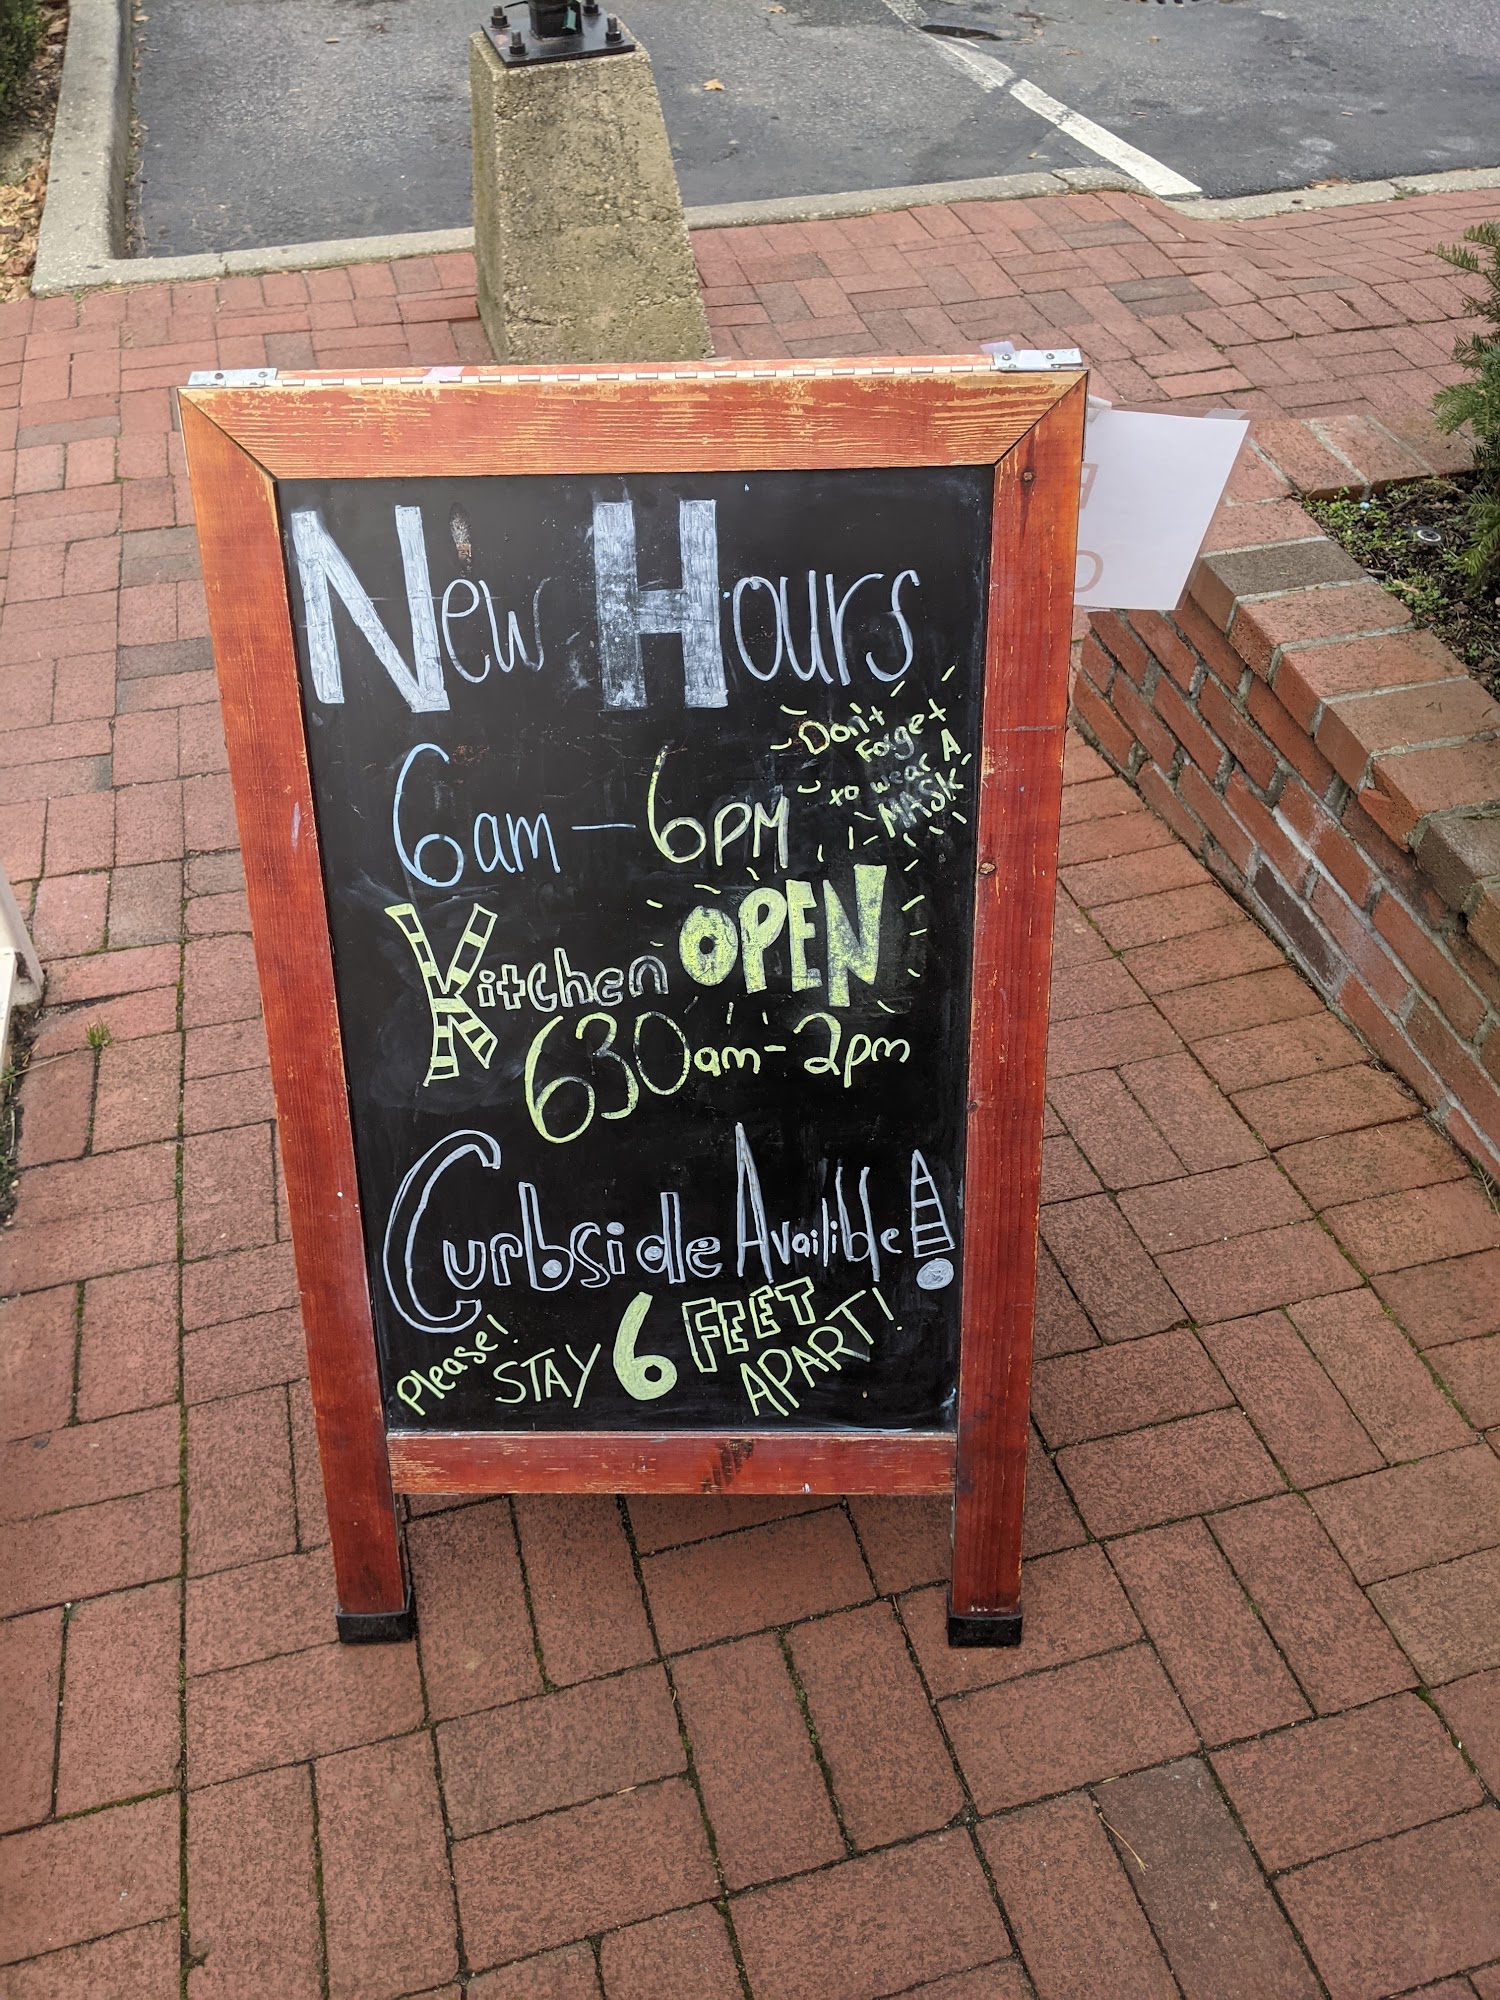 New Hours
Don't
Forget
to wear A
MASK
6am - 6PM
Kitchen OPEN
630am - 2pm
Curbside Availible!
Please! STAY 6 FEET
APART!